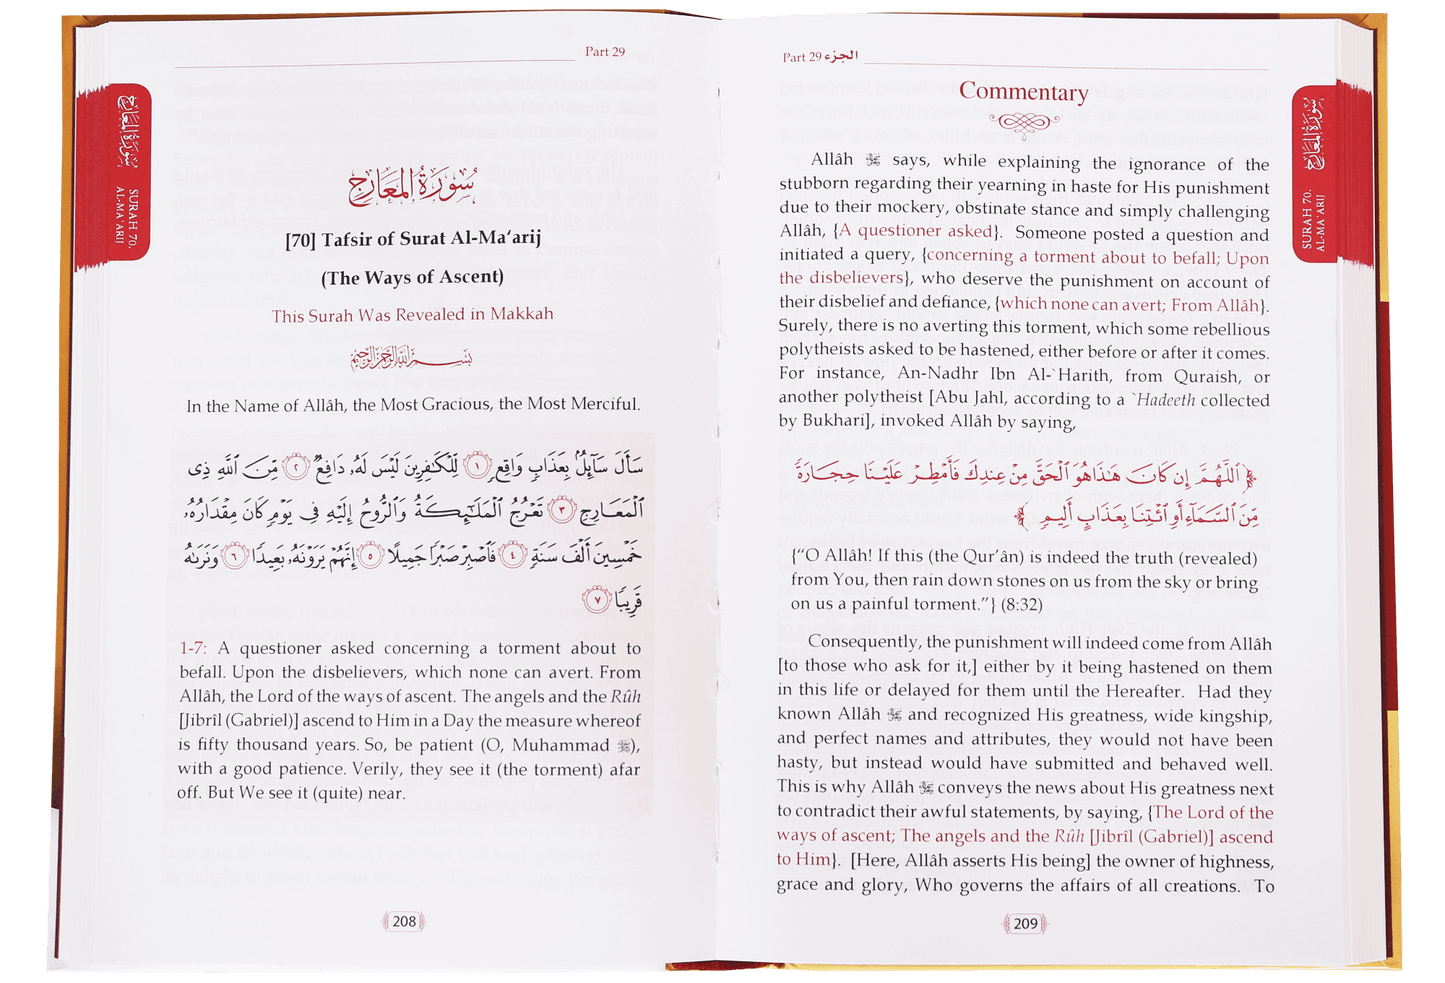 Part 29
سُورَةُ المَعَارِج
SURAH 70.
AL-MA'ARIJ
سُورَةُ المَعَارِجِ
[70] Tafsir of Surat Al-Ma‘arij
(The Ways of Ascent)
This Surah Was Revealed in Makkah
بِسْمِ اللَّهِ الرَّحْمَنِ الرَّحِيمِ
In the Name of Allâh, the Most Gracious, the Most Merciful.
سَأَلَ سَآئِلٌۢ بِعَذَابٍ وَاقِعٍ ١ لِّلْكَٰفِرِينَ لَيْسَ لَهُۥ دَافِعٌ ٢ مِّنَ ٱللَّهِ ذِى
ٱلْمَعَارِجِ ٣ تَعْرُجُ ٱلْمَلَٰٓئِكَةُ وَٱلرُّوحُ إِلَيْهِ فِى يَوْمٍ كَانَ مِقْدَارُهُۥ
خَمْسِينَ أَلْفَ سَنَةٍ ٤ فَٱصْبِرْ صَبْرًا جَمِيلًا ٥ إِنَّهُمْ يَرَوْنَهُۥ بَعِيدًا ٦ وَنَرَىٰهُ
قَرِيبًا ٧
1-7: A questioner asked concerning a torment about to
befall. Upon the disbelievers, which none can avert. From
Allâh, the Lord of the ways of ascent. The angels and the Rûh
[Jibrîl (Gabriel)] ascend to Him in a Day the measure whereof
is fifty thousand years. So, be patient (O, Muhammad ﷺ),
with a good patience. Verily, they see it (the torment) afar
off. But We see it (quite) near.
208
Part 29 الجزء
سُورَةُ المَعَارِج
SURAH 70.
AL-MA'ARIJ
Commentary
Allâh ﷻ says, while explaining the ignorance of the
stubborn regarding their yearning in haste for His punishment
due to their mockery, obstinate stance and simply challenging
Allâh, {A questioner asked}. Someone posted a question and
initiated a query, {concerning a torment about to befall; Upon
the disbelievers}, who deserve the punishment on account of
their disbelief and defiance, {which none can avert; From Allâh}.
Surely, there is no averting this torment, which some rebellious
polytheists asked to be hastened, either before or after it comes.
For instance, An-Nadhr Ibn Al-`Harith, from Quraish, or
another polytheist [Abu Jahl, according to a `Hadeeth collected
by Bukhari], invoked Allâh by saying,
﴿ٱللَّهُمَّ إِن كَانَ هَٰذَا هُوَ ٱلْحَقَّ مِنْ عِندِكَ فَأَمْطِرْ عَلَيْنَا حِجَارَةً
مِّنَ ٱلسَّمَآءِ أَوِ ٱئْتِنَا بِعَذَابٍ أَلِيمٍ﴾
{“O Allâh! If this (the Qur’ân) is indeed the truth (revealed)
from You, then rain down stones on us from the sky or bring
on us a painful torment.”} (8:32)
Consequently, the punishment will indeed come from Allâh
[to those who ask for it,] either by it being hastened on them
in this life or delayed for them until the Hereafter. Had they
known Allâh ﷻ and recognized His greatness, wide kingship,
and perfect names and attributes, they would not have been
hasty, but instead would have submitted and behaved well.
This is why Allâh ﷻ conveys the news about His greatness next
to contradict their awful statements, by saying, {The Lord of the
ways of ascent; The angels and the Rûh [Jibrîl (Gabriel)] ascend
to Him}. [Here, Allâh asserts His being] the owner of highness,
grace and glory, Who governs the affairs of all creations. To
209